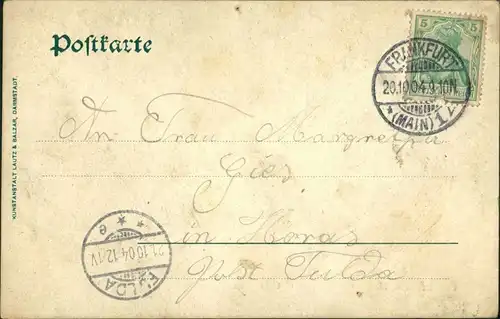 Postkarte
5 5
FRANKFURT
20.10.04.9-10N.
* (MAIN) 1
An Frau Margretha
Gies
in Horas
Post Fulda
KUNSTANSTALT LAUTZ & BALZAR, DARMSTADT.
* * e
21.10.04.12-1V
FULDA